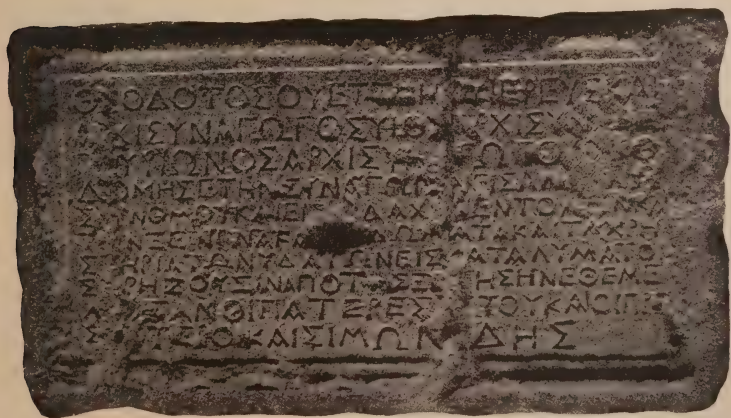 ΘΕΟΔΟΤΟΣ ΟΥΕΤΤΗΝΟΥ ΙΕΡΕΥΣ ΚΑΙ
ΑΡΧΙΣΥΝΑΓΩΓΟΣ ΥΙΟΣ ΑΡΧΙΣΥΝ
ΥΙΩΝΟΣ ΑΡΧΙΣΥΝ ΓΩΓΟΥ ΩΚΟ
ΔΟΜΗΣΕ ΤΗΝ ΣΥΝΑΓΩΓ Ν ΕΙΣ ΑΝ
ΝΟΜΟΥ ΚΑΙ ΕΙΣ ΔΑΧΗΝ ΕΝΤΟΛΩΝ ΚΑΙ
ΞΕΝΩΝΑ ΚΑ ΔΩΜΑΤΑ ΚΑΙ ΤΑ ΧΡΗ
Σ ΗΡΙΑ ΤΩΝ ΥΔΑΤΩΝ ΕΙΣ ΚΑΤΑΛΥΜΑ ΤΟΙ
Σ ΡΗΖΟΥΣΙΝ ΑΠΟ ΤΗΣ ΞΕ ΗΣ ΗΝ ΕΘΕΜΕ
Λ ΣΑΝ ΟΙ ΠΑΤΕΡΕΣ ΥΤΟΥ ΚΑΙ ΟΙ ΠΡΕ
Σ ΥΤΕΡΟΙ ΚΑΙ ΣΙΜΩΝ ΔΗΣ